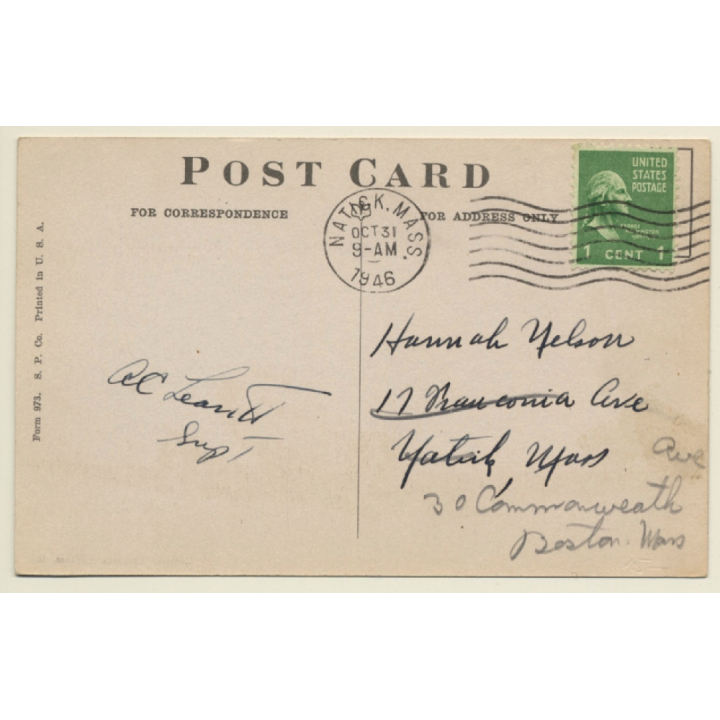 POST CARD
FOR CORRESPONDENCE
FOR ADDRESS ONLY
NATICK, MASS.
OCT 31
9-AM
1946
UNITED
STATES
POSTAGE
1 CENT 1
Form 973. S. P. Co. Printed in U. S. A.
AC Leavitt
Supt
Hannah Nelson
17 Franconia Ave
Natick, Mass
30 Commonweath Ave
Boston. Mass